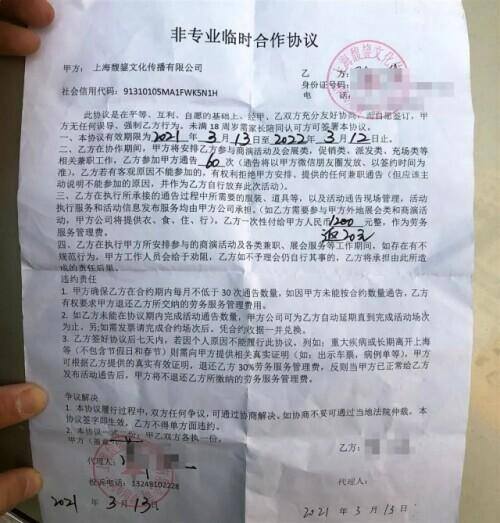 非专业临时合作协议
甲方：上海馥鋆文化传播有限公司
乙方：
社会信用代码：91310105MA1FWK5N1H
身份证号码：
电话：
此协议是在平等、互利、自愿的基础上，经甲、乙双方充分友好协商，而自愿签订，甲
方无任何误导、强制乙方行为，未满18周岁需家长陪同认可方可签署本协议。
一、本协议有效期限为2021年3月13日至2022年3月12日止。
二、在协作期间，甲方将安排乙方参与商演活动及会展类、促销类、派发类、充场类等
相关兼职工作，乙方参加甲方通告60次（通告将以甲方微信朋友圈发放、以签约时间为
准），乙方若有客观原因不能参加的，有权利拒绝甲方安排、提供的任何兼职通告（但应该主
动说明不能参加的原因，并作为乙方自行放弃此次活动）。
三、乙方在执行所承接的通告过程中所需要的服装、道具等，以及活动通告现场管理，活动
执行服务和活动信息发布服务均由甲方公司承担。（如乙方需要参与甲方外地展会类和商演活
动，甲方公司将提供衣、食、住、行），乙方一次性付给甲方人民币1200元整，作为劳务
服务管理费。
返20元
四、乙方在执行甲方所安排参与的商演活动及各类兼职、展会服务等工作期间，如存在有不
规范行为，甲方工作人员会给予劝阻，乙方如不予理会仍自行其事的，乙方将承担由此所造
成的责任后果。
违约责任
1. 甲方确保乙方在合约期内每月不低于30次通告数量，如因甲方未能按合约数量通告，乙方
有权要求甲方退还乙方所交纳的劳务服务管理费用。
2. 如乙方未能在协议期内完成活动通告数量，甲方公司可为乙方自动延期直到完成活动场次
为止，另：如需发票请完成合约场次后，凭合约收据一并兑换。
3. 乙方签好协议后七天内，若因个人原因不能履行此协议，列如：重大疾病或长期离开上海
等（不包含节假日和春节）则需向甲方提供相关真实证明（如：出示车票，病例单等），甲方
可根据乙方提供的真实有效证明，退还乙方30%劳务服务管理费，反则当甲方已正常给乙方
发布活动通告后，甲方将不退还乙方所缴纳的劳务服务管理费。
争议解决
1. 本协议履行过程中，双方任何争议，可通过协商解决。如协商不妥可通过当地法院仲裁。本协
议签字即生效，乙方不得单方面违约。
2. 本协议一式二份，甲乙双方各执一份。
甲方（盖章
乙方：
代理人：
投诉电话：13248102228
2021年3月13日
2021年3月13日